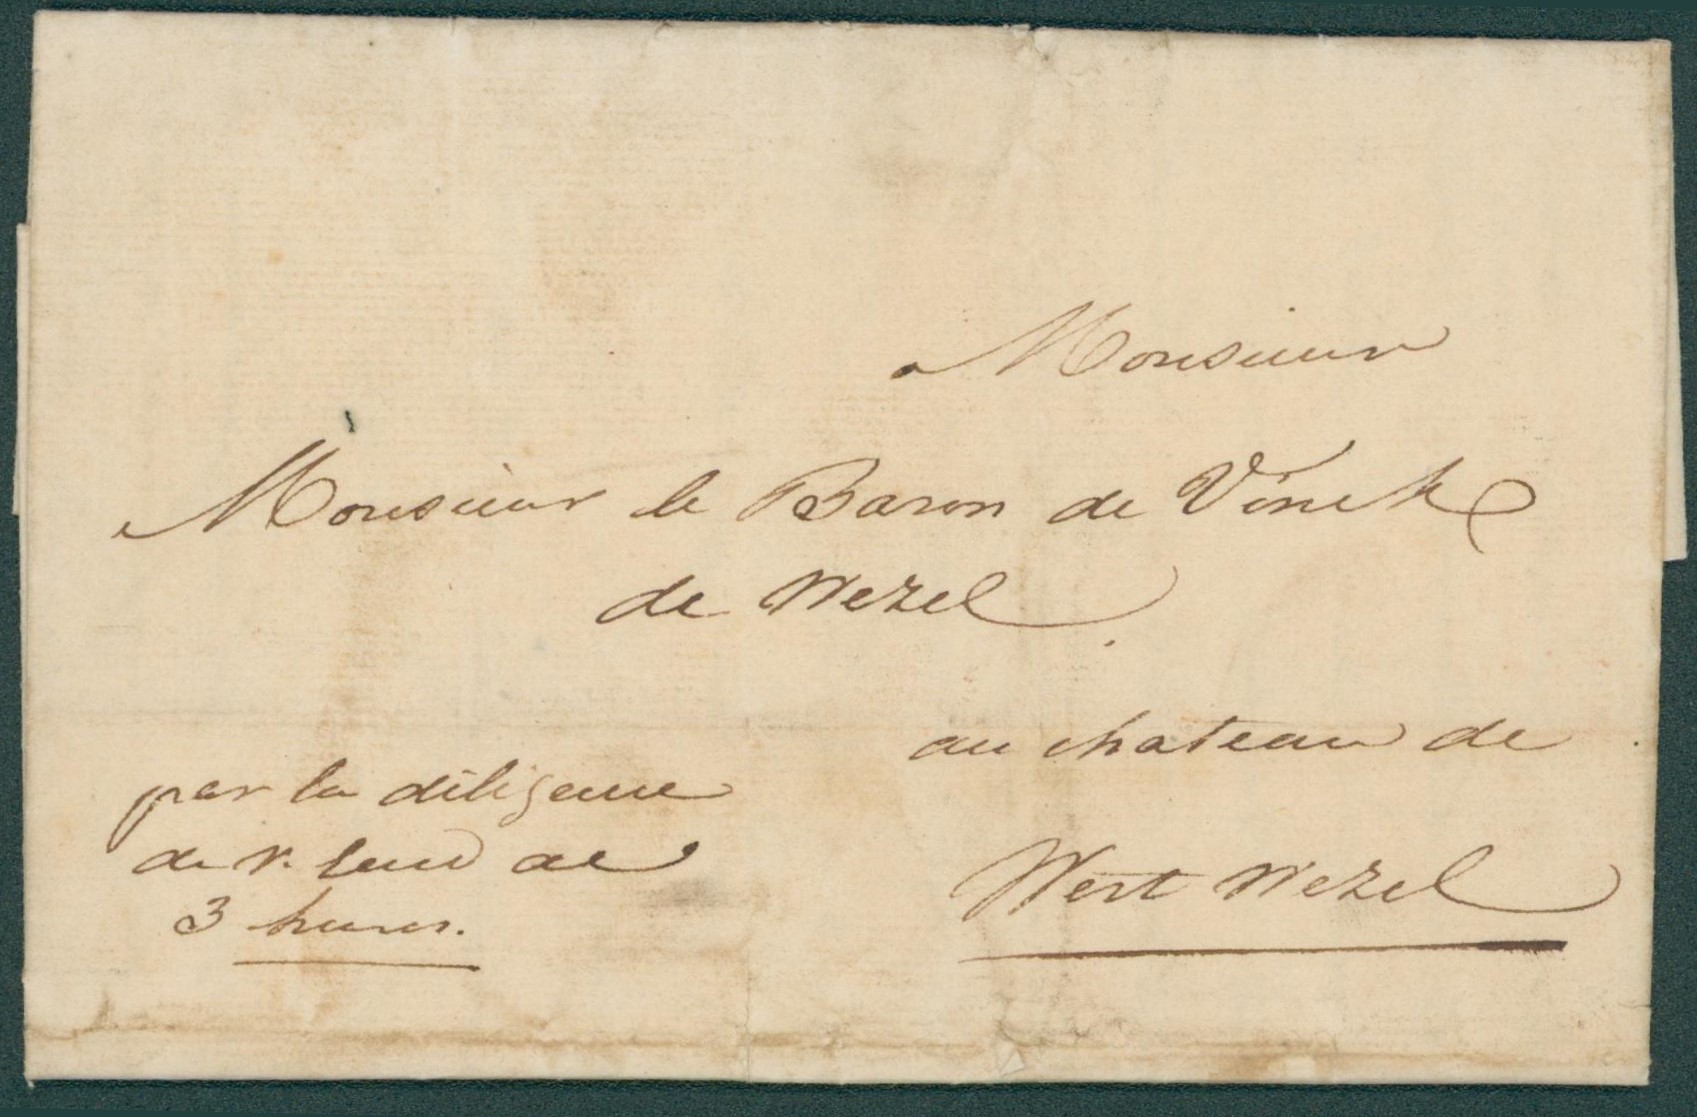 Monsieur
Monsieur le Baron de Vinck
de Wezel
au chateau de
West Wezel
par la diligence
de
3 heures.